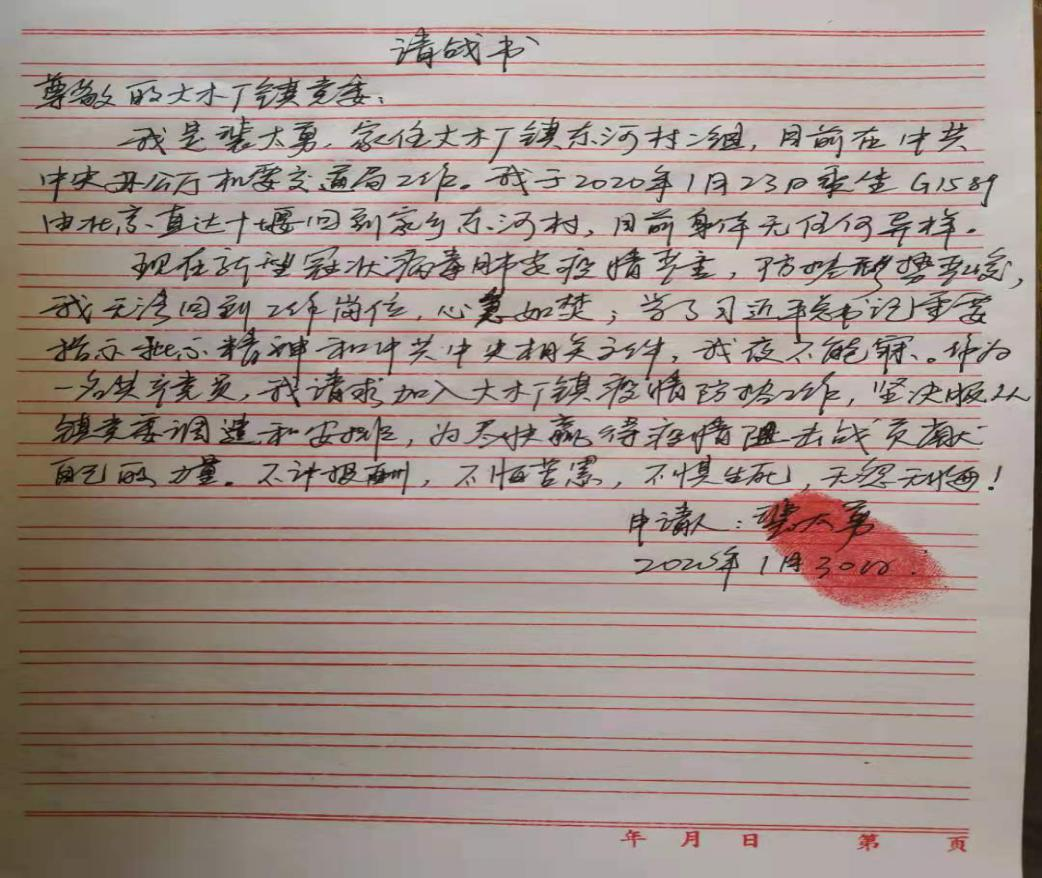 请战书
尊敬的大木厂镇党委：
我是裴大勇，家住大木厂镇东河村二组，目前在中共
中央办公厅机要交通局工作。我于2020年1月23日乘坐G1589
由北京直达十堰回到家乡东河村，目前身体无任何异样。
现在新型冠状病毒肺炎疫情严重，防控形势严峻，
我无法回到工作岗位，心急如焚；学了习近平总书记重要
指示批示精神和中共中央相关文件，我夜不能寐。作为
一名共产党员，我请求加入大木厂镇疫情防控工作，坚决服从
镇党委调遣和安排，为尽快赢得疫情阻击战贡献
自己的力量。不计报酬，不怕苦累，不惧生死，无怨无悔！
申请人：裴大勇
2020年1月30日.
年 月 日 第 页